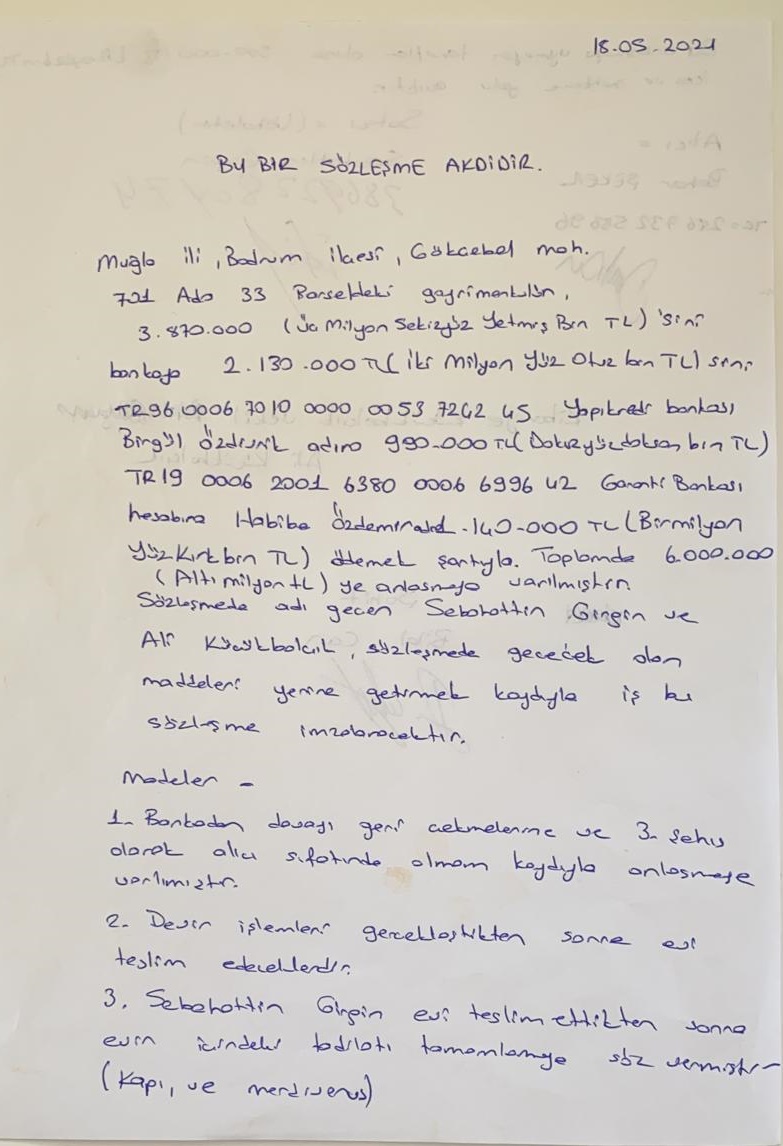 18.05.2021
BU BİR SÖZLEŞME AKDİDİR.
Muğla ili, Bodrum ilçesi, Gökçebel mah.
721 Ada 33 Parseldeki gayrimenkulün,
3.870.000 (Üç Milyon Sekizyüz Yetmiş Bin TL)'sini
bankaya 2.130.000 TL (İki Milyon Yüz Otuz bin TL) sini
TR96 0006 7010 0000 0053 7242 45 Yapıkredi bankası
Birgül adına 990.000 TL (Dokuzyüzdoksan bin TL)
TR19 0006 2001 6380 0006 6996 42 Garanti Bankası
hesabına Habibe 1.140.000 TL (Birmilyon
Yüz Kırk bin TL) ödemek şartıyla. Toplamda 6.000.000
(Altı milyon TL) ye anlaşmaya varılmıştır.
Sözleşmede adı geçen Sebahattin Girgin ve
Ali Küçükbalcık, sözleşmede geçecek olan
maddeleri yerine getirmek kaydıyla iş bu
sözleşme imzalanacaktır.
Madeler -
1. Bankadan davayı geri çekmelerine ve 3. şahıs
olarak alıcı sıfatında olmam kaydıyla anlaşmaya
varılmıştır.
2. Devir işlemleri gerçekleştikten sonra evi
teslim edeceklerdir.
3. Sebahattin Girgin evi teslim ettikten sonra
evin içindeki tadilatı tamamlamaya söz vermiştir
(Kapı, ve merdiven)